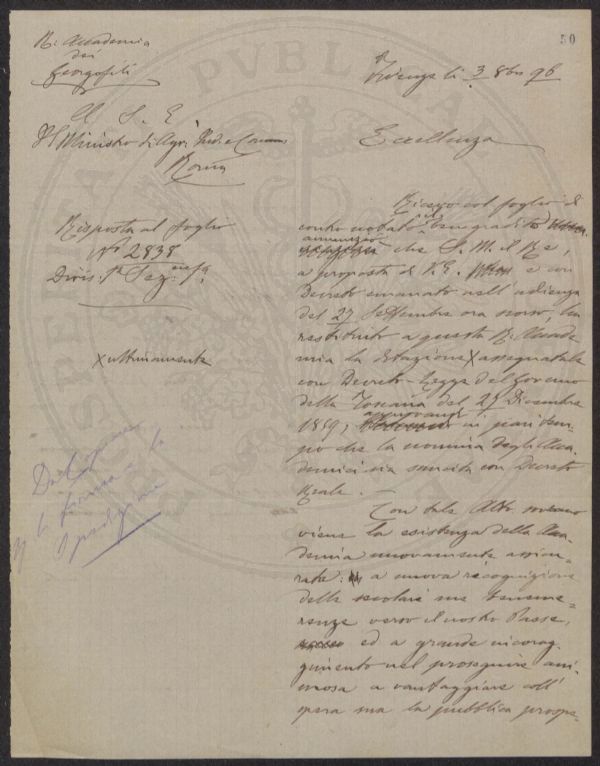 50
R. Accademia
dei
Georgofili
Firenze li 3 8bre 96
A S. E.
Il Ministro di Agr. Ind. e Comm
Roma
Eccellenza
Risposta al foglio
N° 2838
Divis. 1ª Sez.
× ultimamente
Da Copiare
la firma e la
Spedizione
Ricevo col foglio di
contro notato
annunzio che S. M. il Re,
a proposta di V. E. e con
Decreto emanato nell'udienza
del 27 Settembre ora scorso, ha
restituito a questa R. Accade
mia la dotazione × assegnatale
con Decreto-Legge del Governo
della Toscana del 29 Dicembre
1859, approvando in pari tem-
po che la nomina degli Acca
demici sia sancita con Decreto
Reale. —
Con tale Atto
viene la esistenza della Acca
demia nuovamente assicu-
rata: a nuova ricognizione
delle secolari sue beneme-
renze verso il nostro Paese,
ed a grande incorag-
gimento nel proseguire ani-
mosa a vantaggiare coll'
opera sua la pubblica prospe-